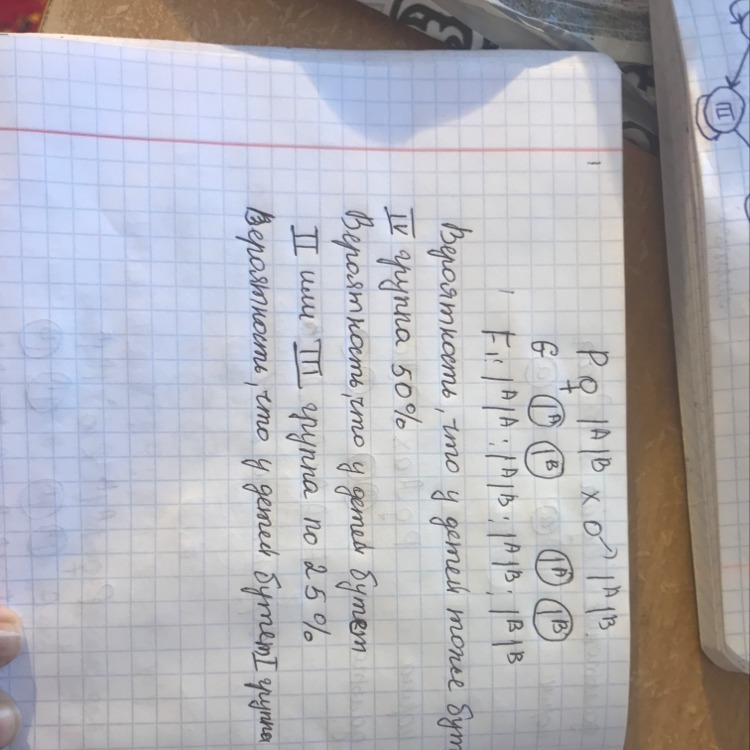 P ♀ IᴬIᴮ x ♂ IᴬIᴮ
G Iᴬ Iᴮ Iᴬ Iᴮ
F₁: IᴬIᴬ : IᴬIᴮ : IᴬIᴮ : IᴮIᴮ
Вероятность, что у детей тоже бут
IV группа 50%
Вероятность, что у детей бутет
II или III группа по 25%
Вероятность, что у детей бутет I группа
III